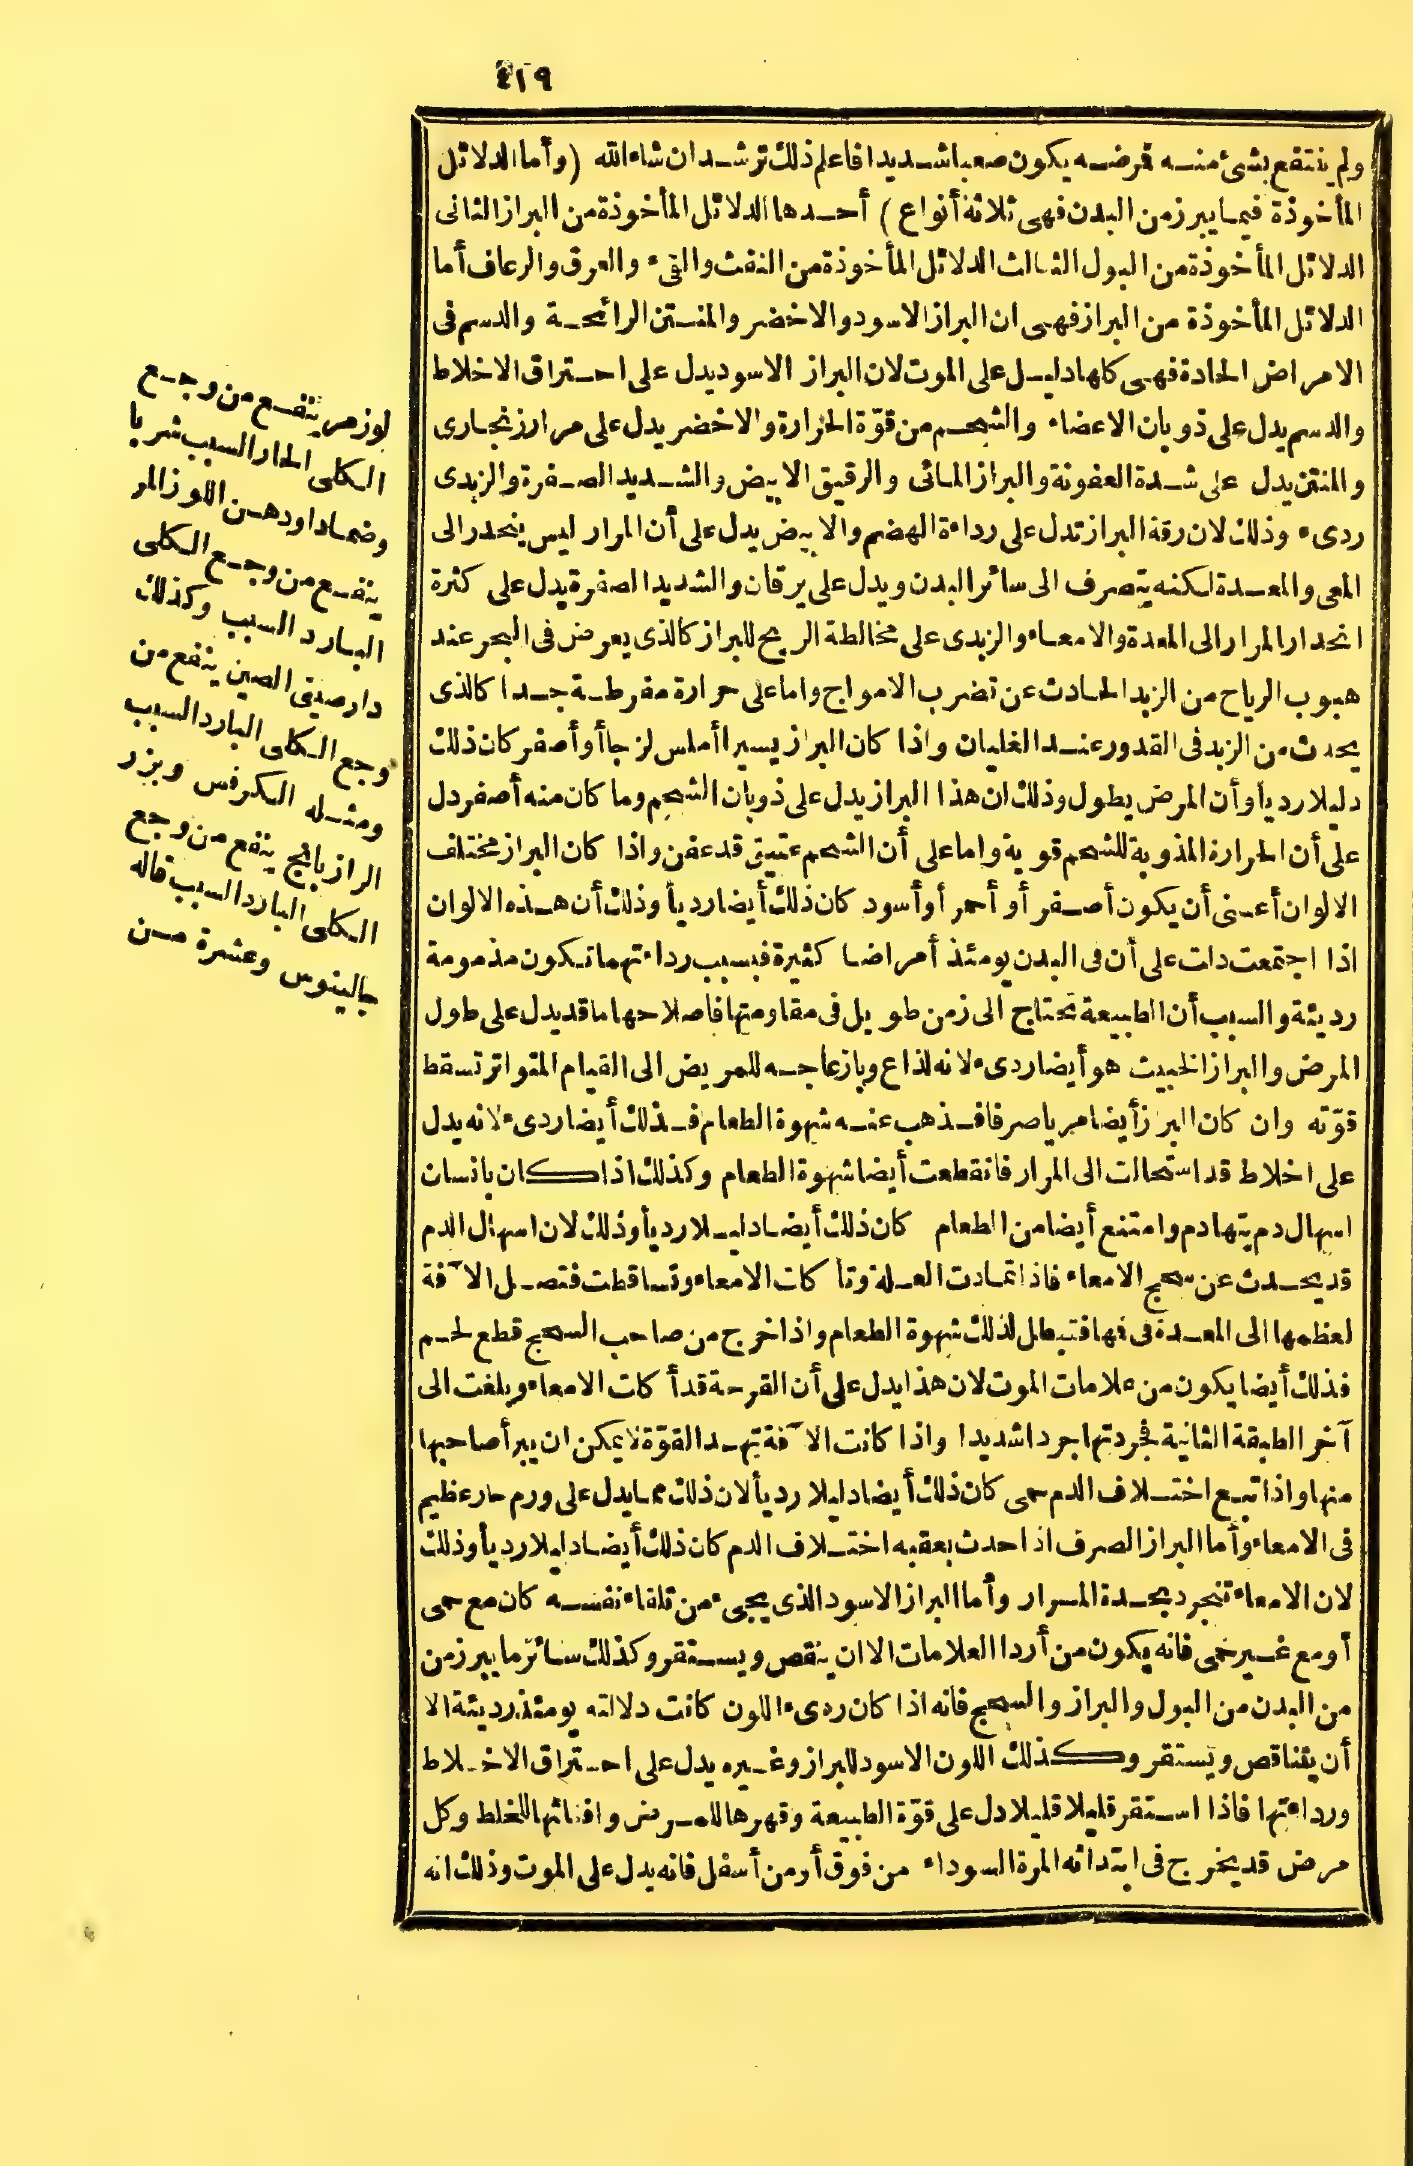 ٤١٩
ولم ينتفع بشئ منه فرضه يكون صعبا شديدا فاعلم ذلك ترشد ان شاء الله (وأما الدلائل
المأخوذة فيما يبرز من البدن فهى ثلاثة أنواع) أحدها الدلائل المأخوذة من البراز الثانى
الدلائل المأخوذة من البول الثالث الدلائل المأخوذة من النفث والقىء والعرق والرعاف أما
الدلائل المأخوذة من البراز فهى ان البراز الاسود والاخضر والمنتن الرائحة والدسم فى
الامراض الحادة فهى كلها دليل على الموت لان البراز الاسود يدل على احتراق الاخلاط
والدسم يدل على ذوبان الاعضاء والشحم من قوّة الحرارة والاخضر يدل على مرار زنجارى
والمنتن يدل على شدة العفونة والبراز المائى والرقيق الابيض والشديد الصفرة والزبدى
ردىء وذلك لان رقة البراز تدل على رداءة الهضم والابيض يدل على أن المرار ليس ينحدر الى
المعى والمعدة لكنه يتصرف الى سائر البدن ويدل على يرقان والشديد الصفرة يدل على كثرة
انحدار المرار الى المعدة والامعاء والزبدى على مخالطة الريح للبراز كالذى يعرض فى البحر عند
هبوب الرياح من الزبد الحادث عن تضرب الامواج واما على حرارة مفرطة جدا كالذى
يحدث من الزبد فى القدور عند الغليان واذا كان البراز يسيرا أملس لزجا أو أصفر كان ذلك
دليلا رديأ وأن المرض يطول وذلك ان هذا البراز يدل على ذوبان الشحم وما كان منه أصفر دل
على أن الحرارة المذوبة للشحم قوية واما على أن الشحم عتيق قد عفن واذا كان البراز مختلف
الالوان أعنى أن يكون أصفر أو أحمر أو أسود كان ذلك أيضا رديأ وذلك أن هذه الالوان
اذا اجتمعت دلت على أن فى البدن يومئذ أمراضا كثيرة فبسبب رداءتها تكون مذمومة
رديئة والسبب أن الطبيعة تحتاج الى زمن طويل فى مقاومتها فاصلاحها ما قد يدل على طول
المرض والبراز الخبيث هو أيضا ردىء لانه لذاع وبازعاجه للمريض الى القيام المتواتر تسقط
قوّته وان كان البراز أيضا مريا صرفا فذهب عنه شهوة الطعام فذلك أيضا ردىء لانه يدل
على اخلاط قد استحالت الى المرار فانقطعت أيضا شهوة الطعام وكذلك اذا كان بانسان
اسهال دم يتهادم وامتنع أيضا من الطعام كان ذلك أيضا دليلا رديأ وذلك لان اسهال الدم
قد يحدث عن سحج الامعاء فاذا تمادت العلة وتأكلت الامعاء وتساقطت فتصل الآفة
لعظمها الى المعدة فى فها فتبطل لذلك شهوة الطعام واذا خرج من صاحب السحج قطع لحم
فذلك أيضا يكون من علامات الموت لان هذا يدل على أن القرحة قد أكلت الامعاء وبلغت الى
آخر الطبقة الثانية فجردتها جردا شديدا واذا كانت الآفة بهذه القوّة لا يمكن ان يبرأ صاحبها
منها واذا تبع اختلاف الدم حمى كان ذلك أيضا دليلا رديأ لان ذلك مما يدل على ورم حار عظيم
فى الامعاء وأما البراز الصرف اذا حدث بعقبه اختلاف الدم كان ذلك أيضا دليلا رديأ وذلك
لان الامعاء تنجرد بحدة المرار وأما البراز الاسود الذى يجىء من تلقاء نفسه كان مع حمى
أو مع غير حمى فانه يكون من أردا العلامات الا ان ينقص ويستقر وكذلك سائر ما يبرز من
من البدن من البول والبراز والسحج فانه اذا كان ردىء اللون كانت دلالته يومئذ رديئة الا
أن يتناقص ويستقر وكذلك اللون الاسود للبراز وغيره يدل على احتراق الاخلاط
ورداءتها فاذا استقر قليلا قليلا دل على قوّة الطبيعة وقهرها للمرض وافنائها للغلط وكل
مرض قد يخرج فى ابتدائه المرة السوداء من فوق أو من أسفل فانه يدل على الموت وذلك انه
لوز مر ينفع من وجع
الكلى الحار السبب شربا
وضمادا ودهن اللوز المر
ينفع من وجع الكلى
البارد السبب وكذلك
دارصينى الصين ينفع من
وجع الكلى البارد السبب
ومثله الكرفس وبزر
الرازيانج ينفع من وجع
الكلى البارد السبب قاله
جالينوس وعشرة من